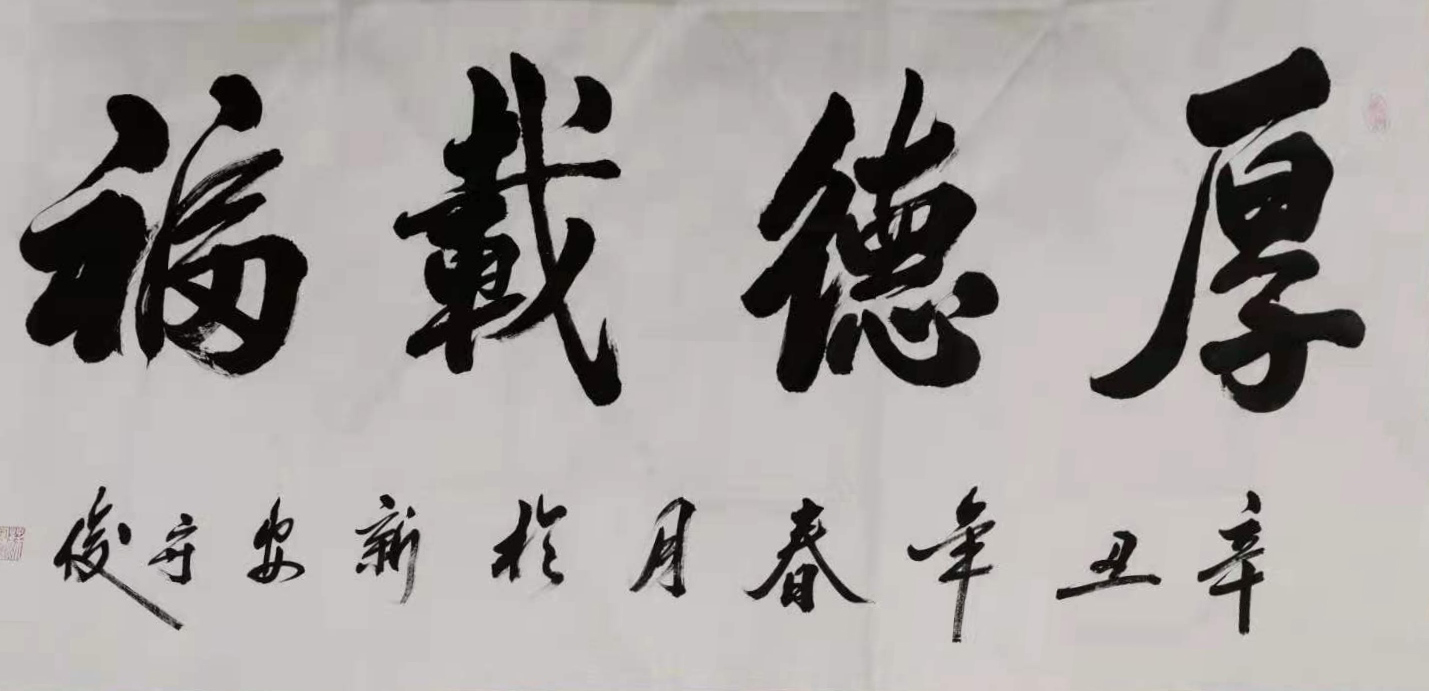 厚德載福
辛丑年春月於新安守俊